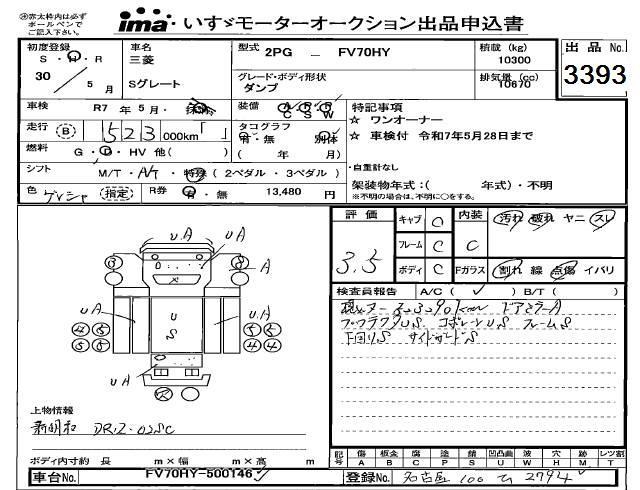 ※赤太枠内は必ず
ボールペンで
ご記入下さい。
ima いすゞモーターオークション出品申込書
初度登録
S・H・R
30 年 5月
車名
三菱
Sグレート
型式 2PG － FV70HY
積載 (kg)
10300
出品 No.
3393
グレード・ボディ形状
ダンプ
排気量 (cc)
10670
車検 R7 年 5月・抹消
装備 A/C P/S P/W
特記事項
☆ ワンオーナー
☆ 車検付 令和7年5月28日まで
走行 (B) 523 000km「 」
タコグラフ
有・無 別体
( 年 月)
燃料 G・D・HV 他( )
・自重計なし
シフト M/T・A/T・特殊 ( 2ペダル・3ペダル )
架装物年式：( 年式)・不明
※不明の場合は、不明に○をする。
色 (指定) R券 有・無 13,480 円
評価 3.5
キャブ C 内装 汚れ 破れ ヤニ スレ
フレーム C C
ボディ C Fガラス 割れ 線 点傷 イバリ
検査員報告 A/C ( ✓ ) B/T ( )
ドアミラーA
フレームS
下回りS サイドガードS
UA UA
A
UA UA
U
S
UA
上物情報
新明和 DR12-02SC
ボディ内寸約 長 m×幅 m×高 m
記号 傷 A 板金 B 腐 C 補 P 塗 S 錆 U 凹凸曲 W 波 H 穴 M 跡 T レツ割
車台No. FV70HY-500146
登録No. 名古屋 100 2794